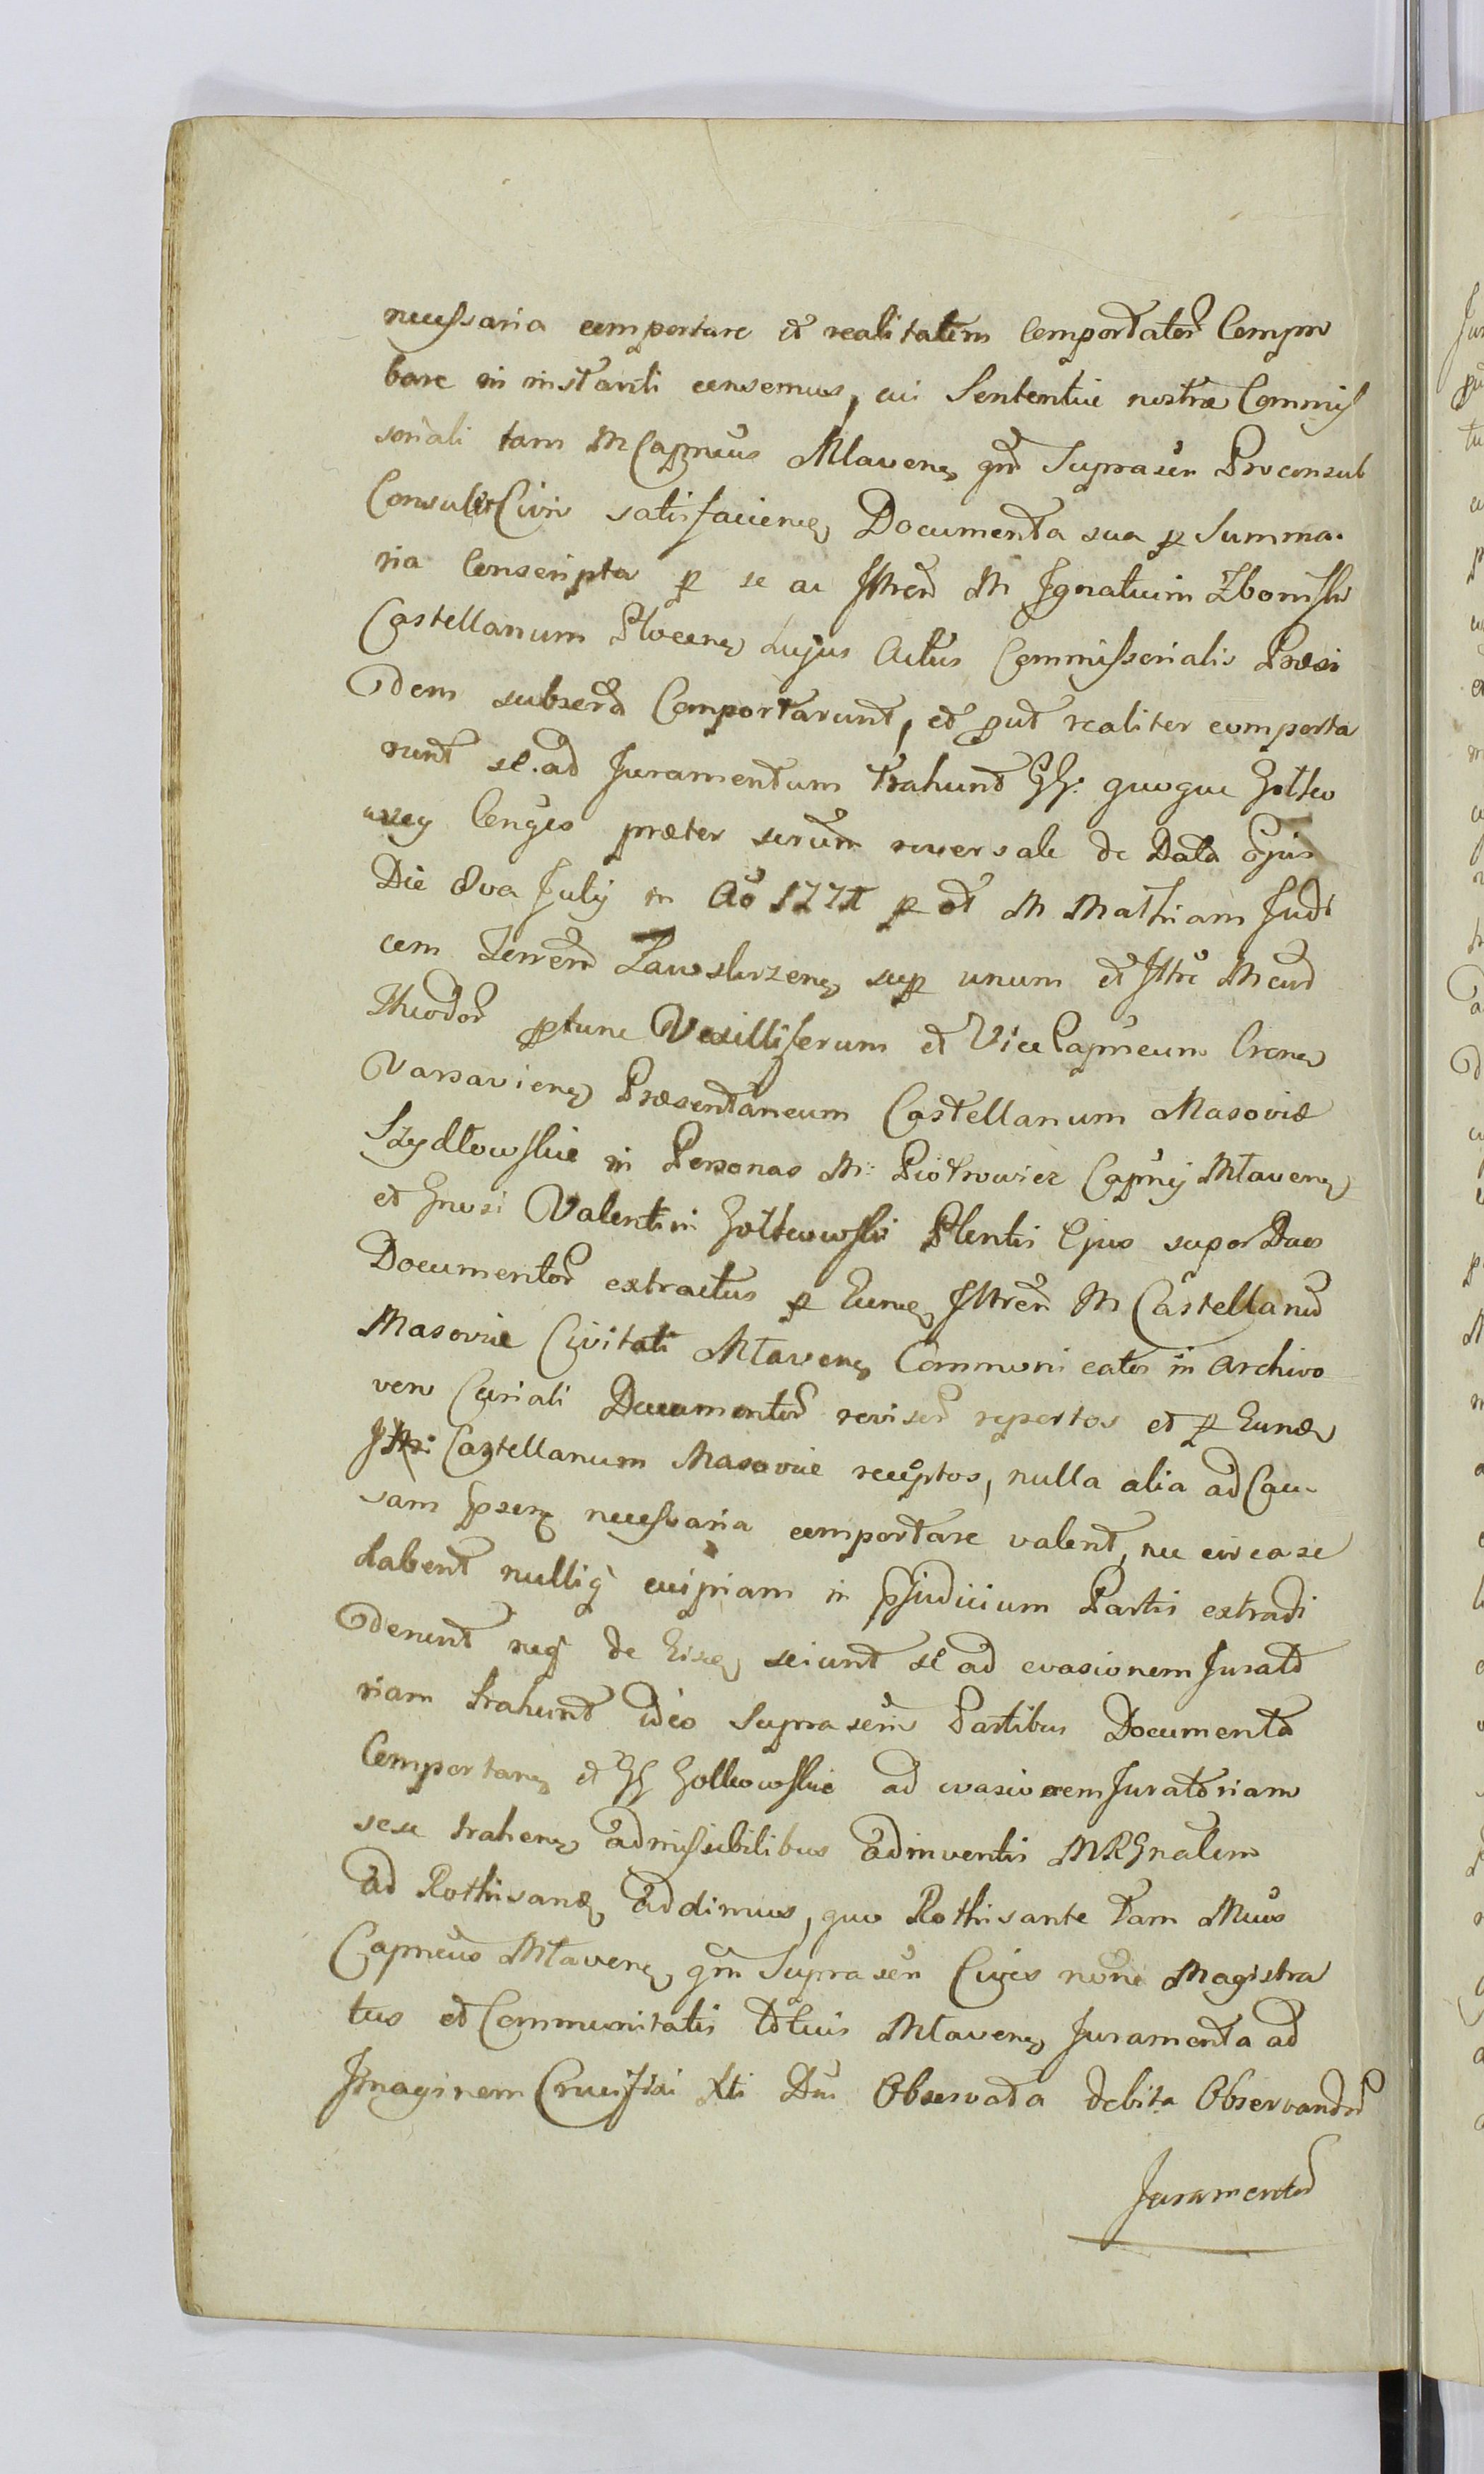 necessaria comportare et realitatem Comportator Compro
bare in instanti censemus, cui Sententiæ nostræ Commis
soriali tam M Capneus Mlavens qm Suprascri Proconsul
Consules Cives satisfaciens Documenta sua p Summa-
ria Conscripta p se ac Illrem M Ignatium Zboiński
Castellanum Plocens hujus Actus Commissorialis Præsi
dem subscra Comportarunt, et put realiter comporta
runt se ad Juramentum trahunt GG: quoque Zołtko
wscy Conges præter serum reversale de Data ejus
Die 8va July in Ao 1771 p ot M Mathiam Judi
cem Terrem Zawskrzens sup unum et Illre Mcum
Theodor ptunc Vexilliferum et ViceCapneum Crens
Varsaviens Præsentaneum Castellanum Masoviæ
Szydłowskie in Personas M: Piotrowicz Capnij Mlavens
et Gnosi Valentini Zołtkowski Plentis Ejus super Duos
Documentor extractus p Eunds Illrem M Castellanum
Masoviæ Civitati Mlavens Communicatos in Archivo
vero Curiali Documentor revisor repertos et p Eunds
Illr: Castellanum Masoviæ receptos, nulla alia ad Cau-
sam psens necessaria comportare valent, nec circa se
habent nulliq cuipiam in pjudicium Partis extradi
derunt neq de Eisds sciunt se ad evasionem Jurato
riam trahunt ideo Suprascris Partibus Documenta
Comportans et GG Zołtkowskie ad evasionem Juratoriam
sese trahens admissibilibus adinventis MRGnalem
ad Rothisands addimus, quo Rothisante tam Mcus
Capneus Mlavens qm Suprascri Cives noie Magistra
tus et Communitatis totius Mlavens Juramenta ad
Imaginem Crucifixi Xti Dni Observata debita Observandor
Juramentor